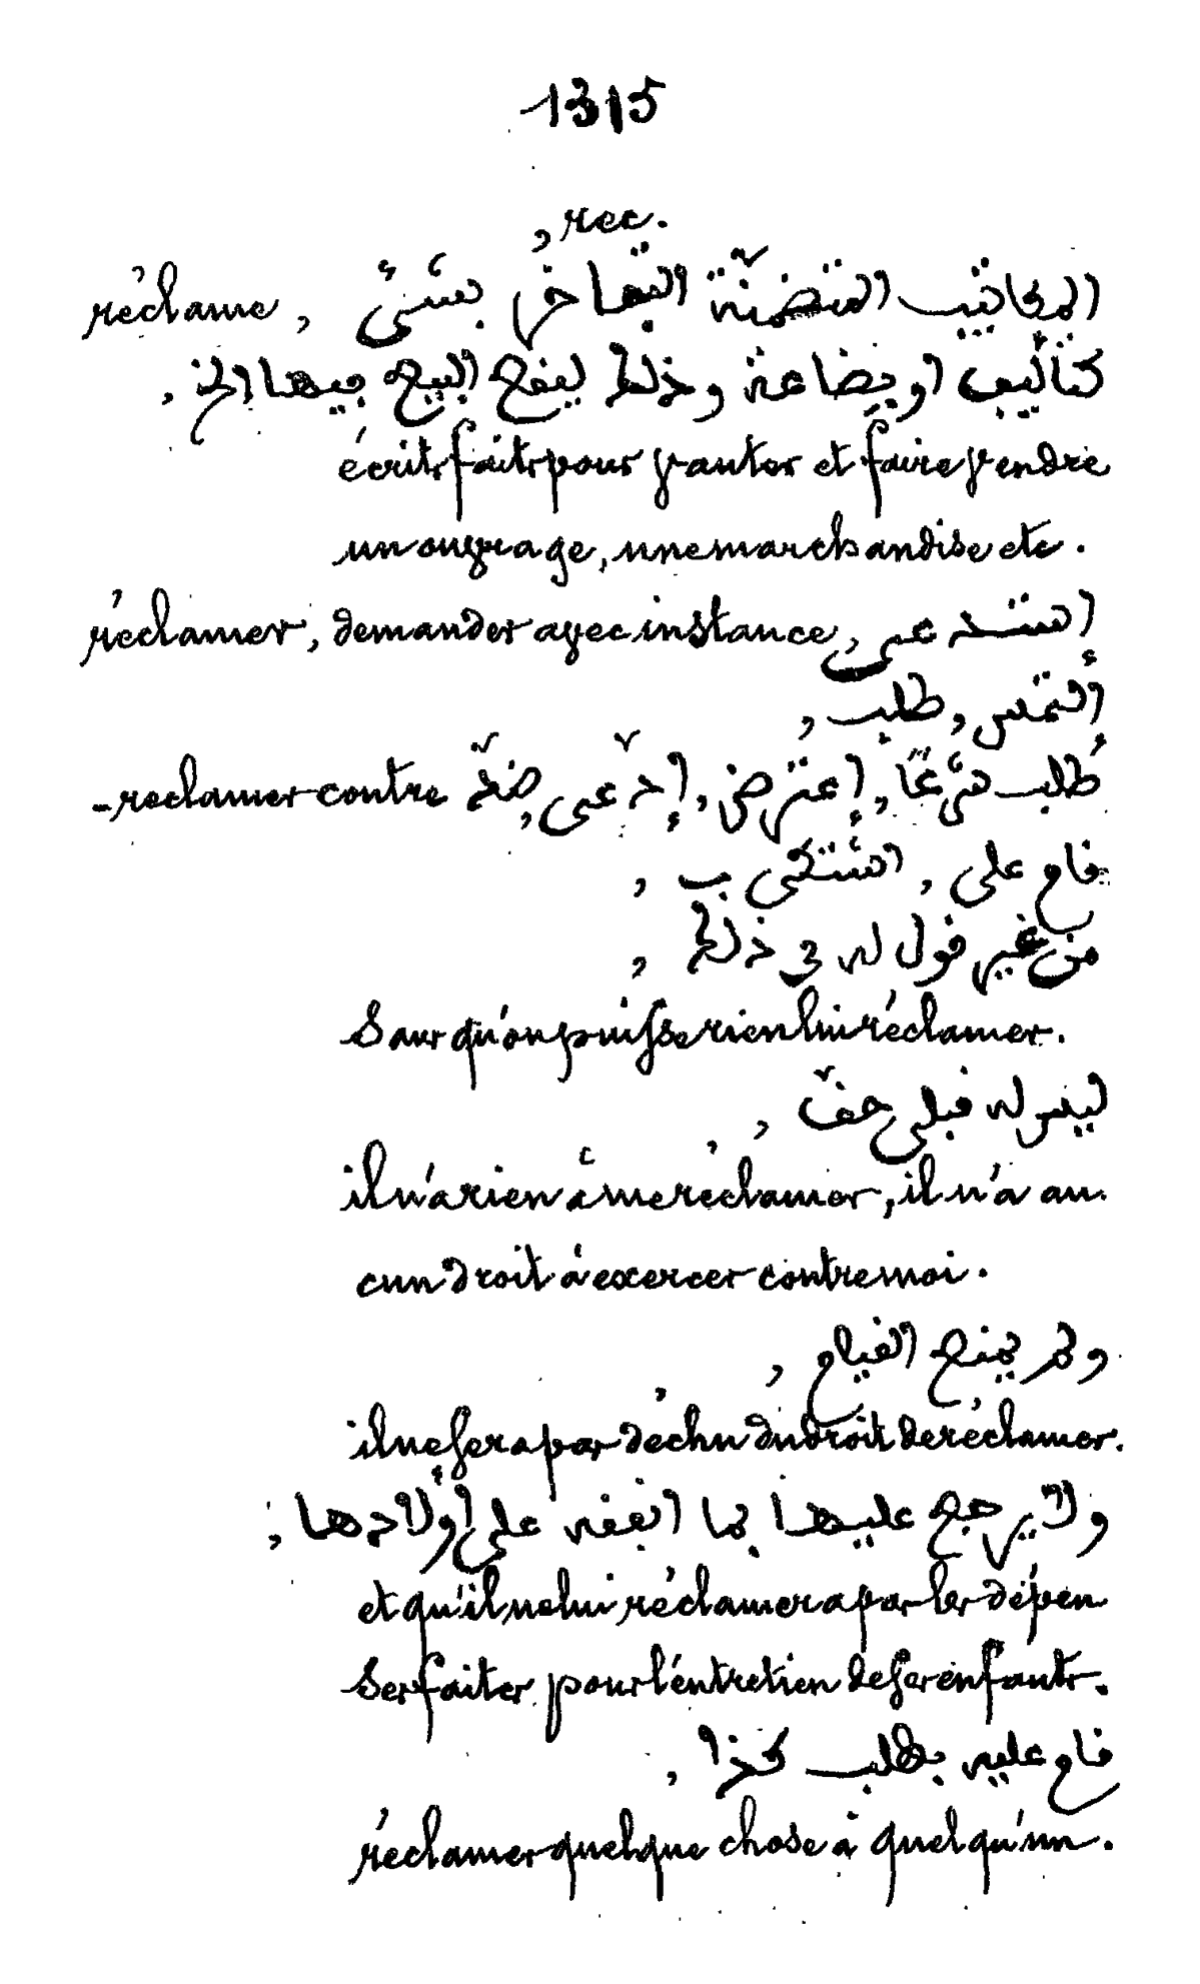 1315
rec.
réclame, المكاتيب المتضمنة التفاخر بشئ
كتأليف او بضاعة وذلك ليقع البيع فيها الخ,
écrits faits pour vanter et faire vendre
un ouvrage, une marchandise etc.
réclamer, demander avec instance, إستدعى
إلتمس, طلب,
- reclamer contre طلب شرعًا, إعترض, إدّعى ضدّ
قام على, اشتكى ب,
من غير قول له في ذلك,
Sans qu'on puisse rien lui réclamer.
ليس له قبلي حقّ,
il n'a rien à me réclamer, il n'a au.
cun droit à exercer contre moi.
ولم يمنع القيام,
il ne sera pas déchu du droit de réclamer.
ولا يرجع عليها بما انفقه على أولادها,
et qu'il ne lui réclamera pas les dépen
ses faites pour l'entretien de ses enfants.
قام عليه بطلب كذا,
réclamer quelque chose à quelqu'un.